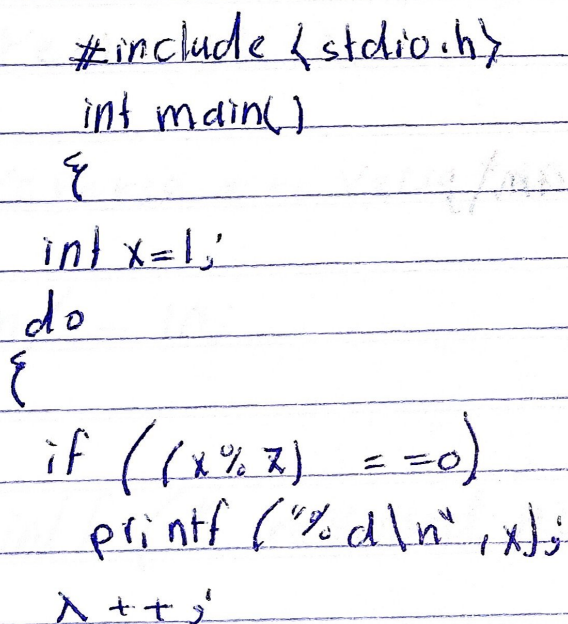 #include <stdio.h>
int main()
{
int x=1;
do
{
if ((x%2) ==0)
printf ("%d\n", x);
x++;